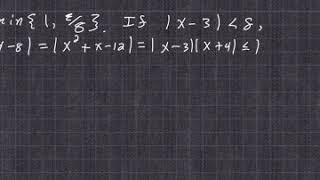 min{1, ε/8}. If |x-3|<δ,
x-8|=|x²+x-12|=|x-3||x+4|≤|